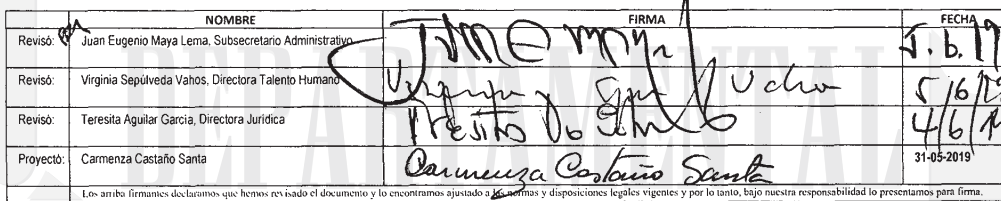 NOMBRE FIRMA FECHA
Revisó: Juan Eugenio Maya Lema, Subsecretario Administrativo 5.6.19
Revisó: Virginia Sepúlveda Vahos, Directora Talento Humano 5/6/19
Revisó: Teresita Aguilar Garcia, Directora Jurídica 4/6/19
Proyectó: Carmenza Castaño Santa Carmenza Castaño Santa 31-05-2019
Los arriba firmantes declaramos que hemos revisado el documento y lo encontramos ajustado a las normas y disposiciones legales vigentes y por lo tanto, bajo nuestra responsabilidad lo presentamos para firma.
DEPARTAMENTAL